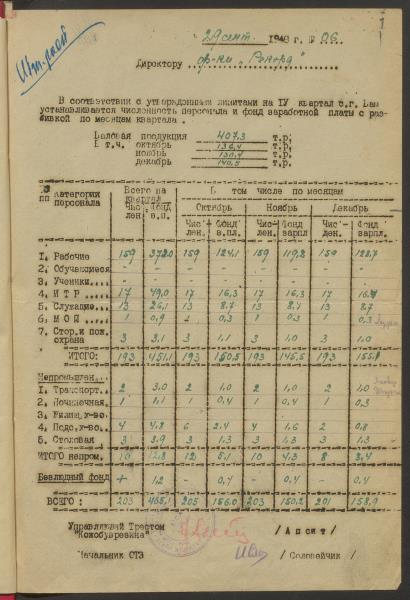 29 сент. 1948 г. №
Директору ф-ки "Рекорд"
В соответствии с утвержденными лимитами на IУ квартал с.г. Вам
устанавливается численность персонала и фонд заработной платы с раз-
бивкой по месяцам квартала.
Валовая продукция 407.3 т.р.
В т.ч. октябрь 136,4 т.р.
ноябрь 130,4 т.р.
декабрь 140,5 т.р.
пп Категории персонала Всего на квартал В том числе по месяцам
Октябрь Ноябрь Декабрь
Чис-лен. Фонд з.п. Чис'-лен. Фонд з.пл. Чис-лен. Фонд зарпл. Чис'-лен. Фонд зарпл.
1. Рабочие 159 159 124,1 159 119,2 159
2. Обучающиеся - - - - - - - -
3. Ученики - - - - - - - -
4. И Т Р 17 49,0 17 16,3 17 16.3 17
5. Служащие 13 26,1 13 8.7 13 8.7 13 8.7
6. М О П 1 0,9 0,3 1 0.3 1 0.3
7. Стор. и пож. охрана 3 3,1 3 1.1 3 1.0 3 1.0
ИТОГО: 193 451,1 193 150,5 193 145,5 193
Непромышлен.
1. Транспорт. 2 3.0 2 1.0 2 1.0 2 1.0
2. Починочная 1 1,1 1 0,4 1 0.4 1 0.3
3. Жилищ. х-во.
4. Подс. х-во 4 4.8 6 2.4 4 1.6 2 0.8
5. Столовая 3 3.9 3 1.3 3 1.3 3 1.3
ИТОГО непром. 10 12.8 12 5.1 10 4.3 8 3.4
Безлюдный фонд 1.2 - 0.4 - 0.4 - 0.4
ВСЕГО: 203 465,1 205 156.0 203 150,2 201 158,9
Управляющий Трестом
"Кожобуврезина" /Апсит/
Начальник ОТЗ /Соловейчик/